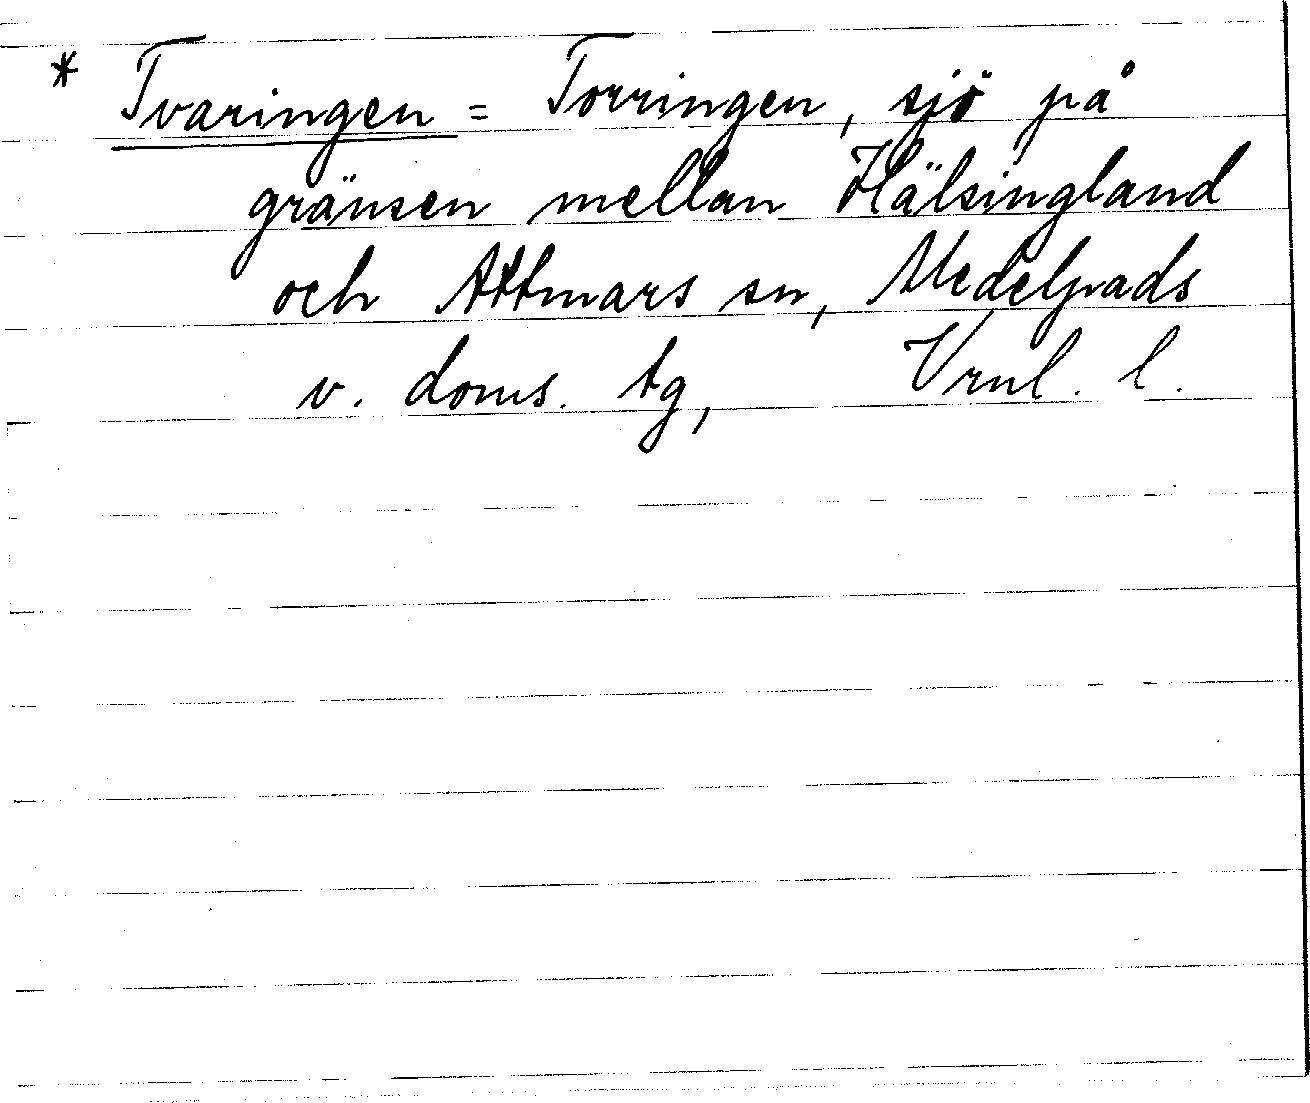 * Tvaringen = Torringen, sjö på
gränsen mellan Hälsingland
och Attmars sn, Medelpads
v. doms. tg, Vrnl. l.